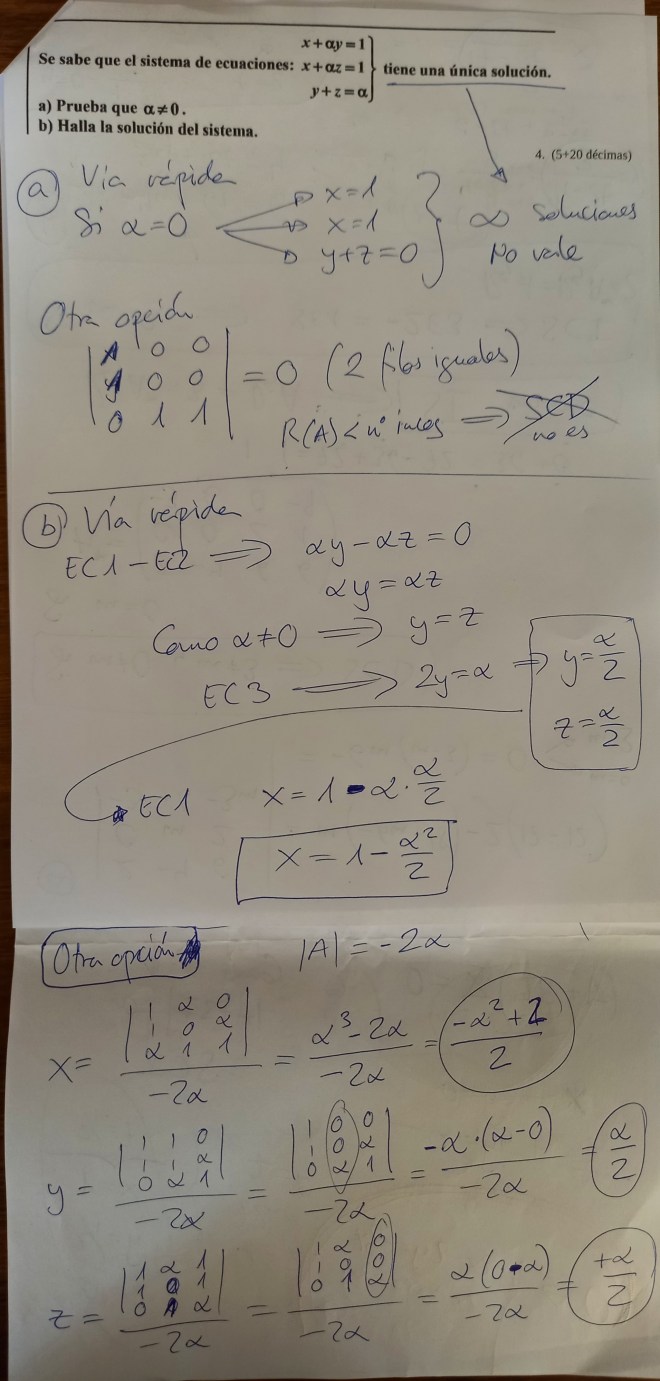 x + αy = 1
Se sabe que el sistema de ecuaciones: x + αz = 1 } tiene una única solución.
y + z = α
a) Prueba que α ≠ 0.
b) Halla la solución del sistema.
4. (5+20 décimas)
a) Vía rápida
Si α = 0
x = 1
x = 1
y + z = 0
} ∞ soluciones
No vale
Otra opción
| 1 0 0 |
| 1 0 0 | = 0 (2 filas iguales)
| 0 1 1 |
R(A) < nº incogs ⟹ SCD
no es
b) Vía rápida
EC1 − EC2 ⟹ αy − αz = 0
αy = αz
Como α ≠ 0 ⟹ y = z
EC3 ⟶ 2y = α ⟹ y = α/2
z = α/2
EC1 x = 1 − α · α/2
x = 1 − α²/2
Otra opción |A| = −2α
x = | 1 α 0 | 1 0 α | α 1 1 | / −2α = α³ − 2α / −2α = −α² + 2 / 2
y = | 1 1 0 | 1 1 α | 0 α 1 | / −2α = | 1 0 0 | 1 0 α | 0 α 1 | / −2α = −α · (α − 0) / −2α = α/2
z = | 1 α 1 | 1 0 1 | 0 1 α | / −2α = | 1 α 0 | 1 0 0 | 0 1 α | / −2α = α (0 − α) / −2α = +α/2